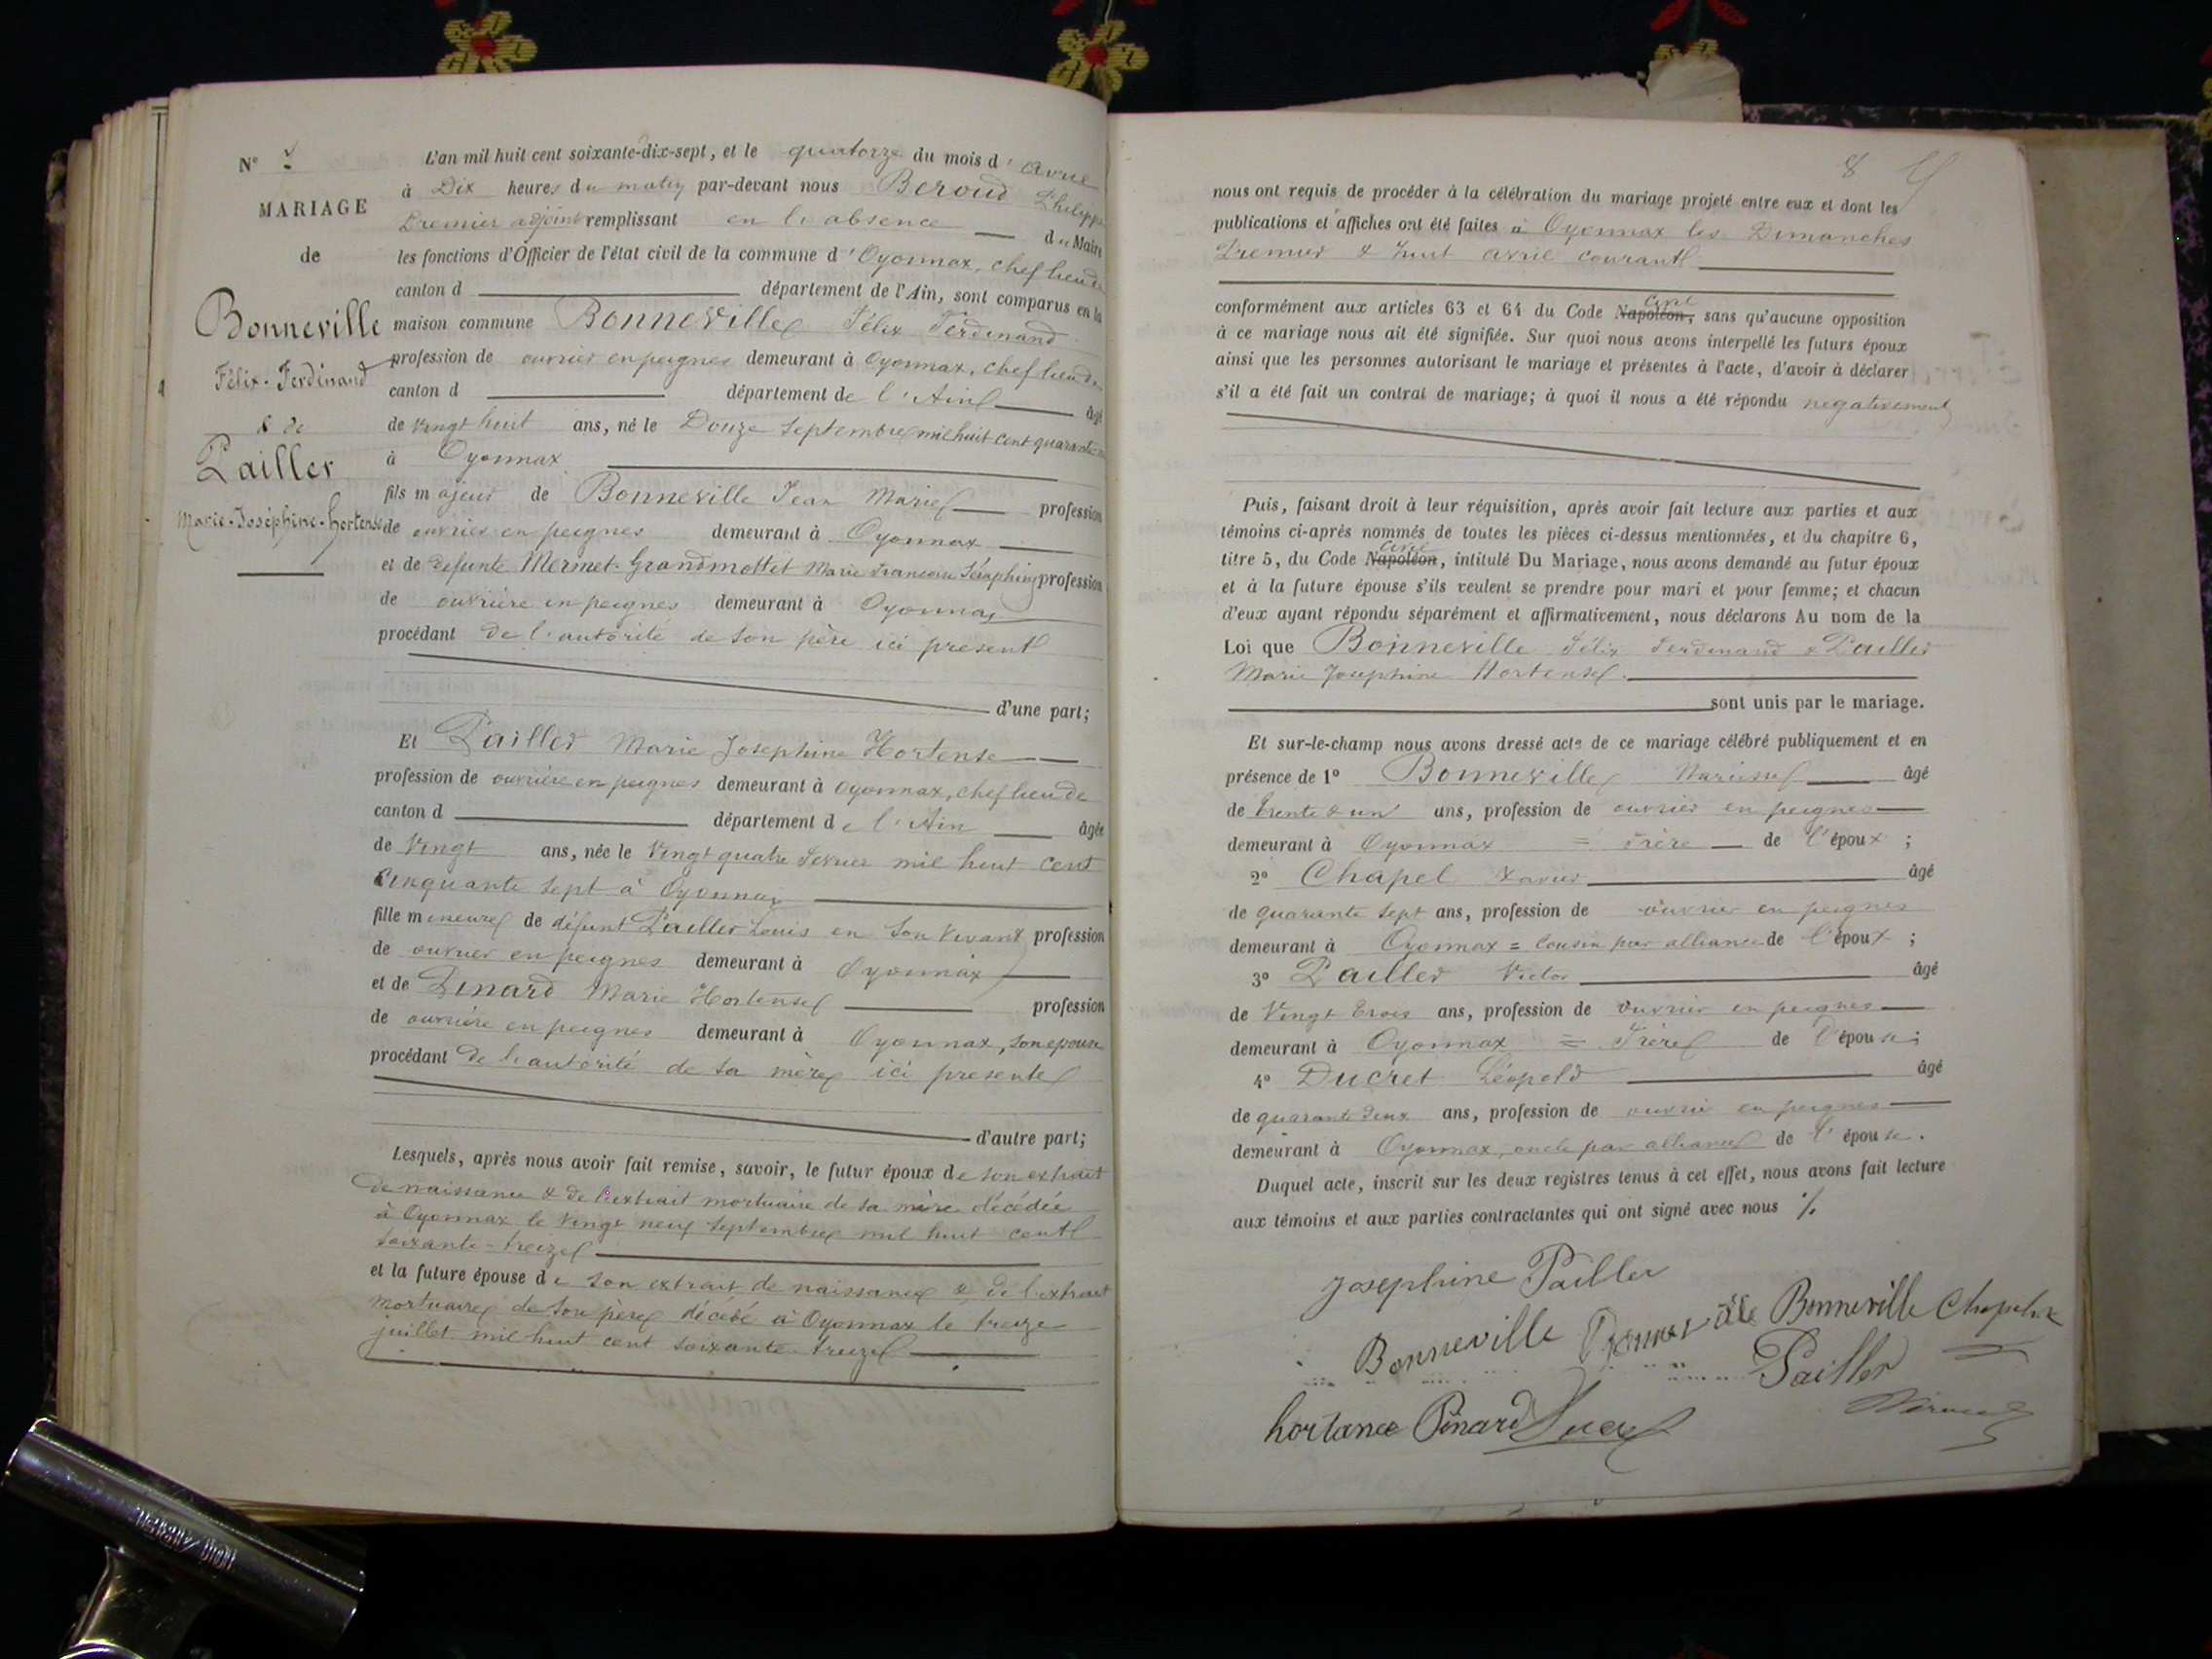 N°
MARIAGE
de
Bonneville
Félix-Ferdinand
& de
Pailler
Marie-Joséphine-hortense
L'an mil huit cent soixante-dix-sept, et le quatorze du mois d'avril
à Dix heures du matin par-devant nous Beroud Philippe
Premier adjoint remplissant en l'absence du Maire
les fonctions d'Officier de l'état civil de la commune d'Oyonnax, chef lieu de
canton d département de l'Ain, sont comparus en la
maison commune Bonneville Félix Ferdinand
profession de ouvrier en peignes demeurant à Oyonnax, chef lieu de
canton d département de l'Ain âgé
de vingt huit ans, né le Douze Septembre mil huit cent quarante
à Oyonnax
fils majeur de Bonneville Jean Marie profession
de ouvrier en peignes demeurant à Oyonnax
et de defunte Mermet-Grandmottet Marie Francoise Séraphine profession
de ouvrière en peignes demeurant à Oyonnax
procédant de l'autorité de son père ici present
d'une part;
Et Pailler Marie Josephine Hortense
profession de ouvrière en peignes demeurant à Oyonnax, chef lieu de
canton d département de l'Ain âgée
de Vingt ans, née le Vingt quatre Fevrier mil huit cent
Cinquante Sept à Oyonnax
fille mineure de défunt Pailler Louis en son vivant profession
de ouvrier en peignes demeurant à Oyonnax
et de Pinard Marie Hortense profession
de ouvrière en peignes demeurant à Oyonnax, son epouse
procédant de l'autorité de sa mère ici presente
d'autre part;
Lesquels, après nous avoir fait remise, savoir, le futur époux de son extrait
de naissance & de l'extrait mortuaire de sa mère décédée
à Oyonnax le vingt neuf Septembre mil huit cent
soixante-treize
et la future épouse de son extrait de naissance & de l'extrait
mortuaire de son père décédé à Oyonnax le treize
juillet mil huit cent soixante-treize
8
nous ont requis de procéder à la célébration du mariage projeté entre eux et dont les
publications et affiches ont été faites à Oyonnax les Dimanches
Premier & huit avril courant
conformément aux articles 63 et 64 du Code Napoléon, civil sans qu'aucune opposition
à ce mariage nous ait été signifiée. Sur quoi nous avons interpellé les futurs époux
ainsi que les personnes autorisant le mariage et présentes à l'acte, d'avoir à déclarer
s'il a été fait un contrat de mariage; à quoi il nous a été répondu negativement
Puis, faisant droit à leur réquisition, après avoir fait lecture aux parties et aux
témoins ci-après nommés de toutes les pièces ci-dessus mentionnées, et du chapitre 6,
titre 5, du Code Napoléon, civil intitulé Du Mariage, nous avons demandé au futur époux
et à la future épouse s'ils veulent se prendre pour mari et pour femme; et chacun
d'eux ayant répondu séparément et affirmativement, nous déclarons Au nom de la
Loi que Bonneville Félix Ferdinand & Pailler
Marie Josephine Hortense
sont unis par le mariage.
Et sur-le-champ nous avons dressé acte de ce mariage célébré publiquement et en
présence de 1° Bonneville âgé
de trente & un ans, profession de ouvrier en peignes
demeurant à Oyonnax = Frère de l'époux ;
2° Chapel Xavier âgé
de quarante sept ans, profession de ouvrier en peignes
demeurant à Oyonnax = Cousin par alliance de l'époux ;
3° Pailler Victor âgé
de Vingt trois ans, profession de ouvrier en peignes
demeurant à Oyonnax = Frère de l'épouse ;
4° Ducret Léopold âgé
de quarante deux ans, profession de ouvrier en peignes
demeurant à Oyonnax, oncle par alliance de l'épouse.
Duquel acte, inscrit sur les deux registres tenus à cet effet, nous avons fait lecture
aux témoins et aux parties contractantes qui ont signé avec nous ./.
Josephine Pailler
Bonneville Bonneville
Pailler
hortance Pinard